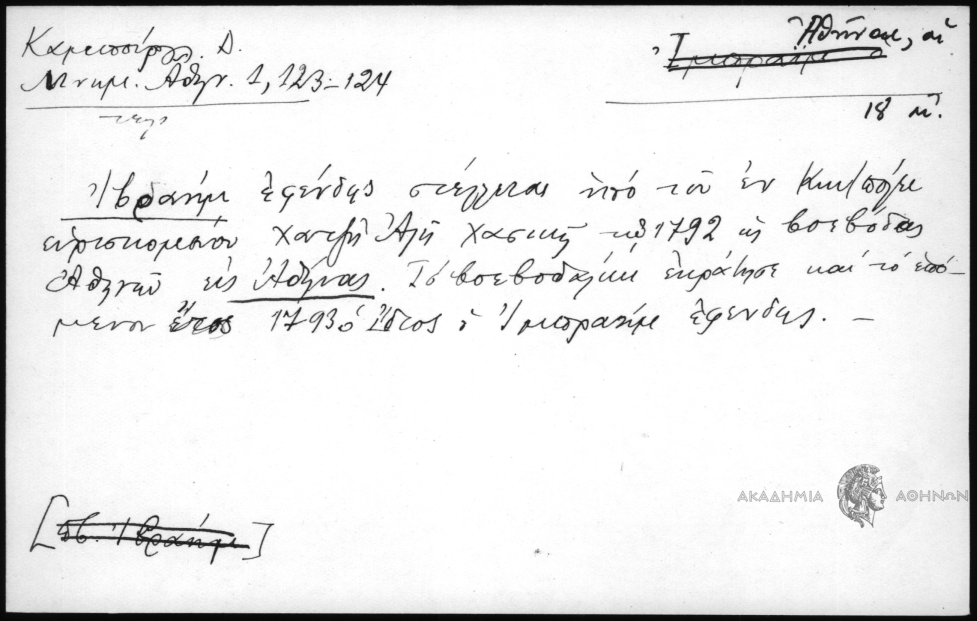 Καμπούρογλ. Δ.
Μνημ. Ἀθην. 1, 123-124
Ἀθῆναι, αἱ
Ἰμπραὴμ
18 αἰ.
Ἰβραὴμ ἐφένδης στέλλεται ὑπὸ τοῦ ἐν Κων/πόλει
εὑρισκομένου Χατζῆ Ἀλῆ Χασεκῆ τῷ 1792 ὡς βοεβόδας
Ἀθηνῶν εἰς Ἀθήνας. Τὸ βοεβοδαλίκι ἐκράτησε καὶ τὸ ἑπό-
μενον ἔτος 1793 ὁ ἴδιος ὁ Ἰμπραὴμ ἐφένδης. —
[σβ. Ἰβραήμ]
ΑΚΑΔΗΜΙΑ ΑΘΗΝΩΝ